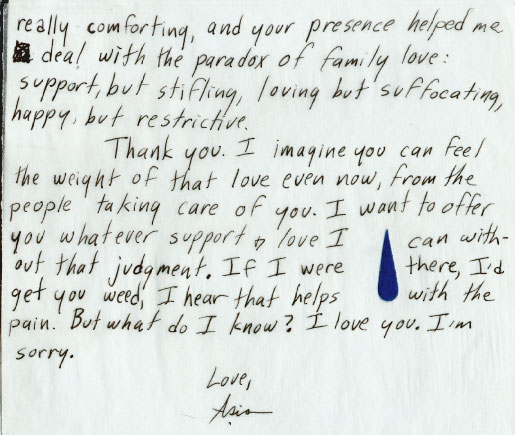 really comforting, and your presence helped me
deal with the paradox of family love:
support, but stifling, loving but suffocating,
happy, but restrictive.
Thank you. I imagine you can feel
the weight of that love even now, from the
people taking care of you. I want to offer
you whatever support & love I can with-
out that judgment. If I were there, I'd
get you weed, I hear that helps with the
pain. But what do I know? I love you. I'm
sorry.
Love,
Asia